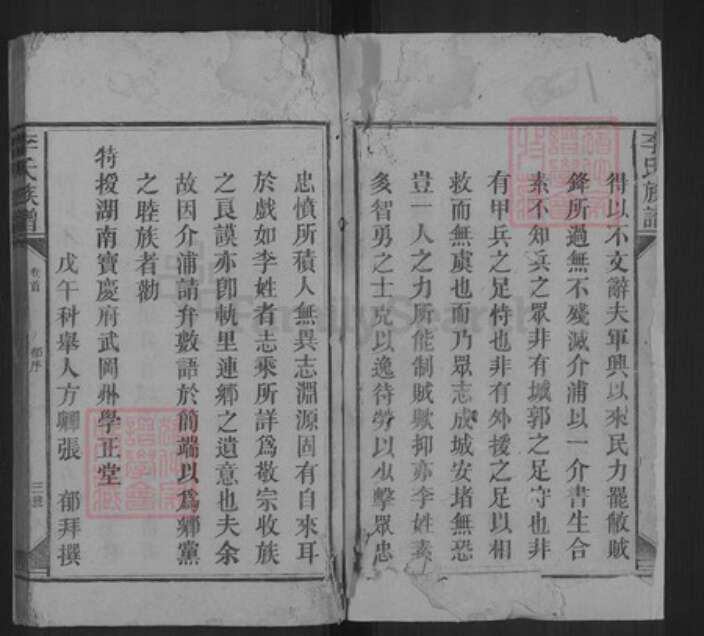 李氏族譜
得以不文辭夫軍興以來民力罷敝賊
鋒所過無不殘滅介浦以一介書生合
素不知兵之眾非有城郭之足守也非
有甲兵之足恃也非有外援之足以相
救而無虞也而乃眾志成城安堵無恐
豈一人之力所能制賊歟抑亦李姓素
多智勇之士克以逸待勞以少擊眾忠
忠憤所積人無異志淵源固有自來耳
於戲如李姓者志乘所詳為敬宗收族
之良謨亦卽軌里連鄉之遺意也夫余
故因介浦請弁數語於簡端以為鄉黨
之睦族者勸
特授湖南寶慶府武岡州學正堂
戊午科舉人方卿張 郁拜撰
李氏族譜
卷首
序
FamilySearch